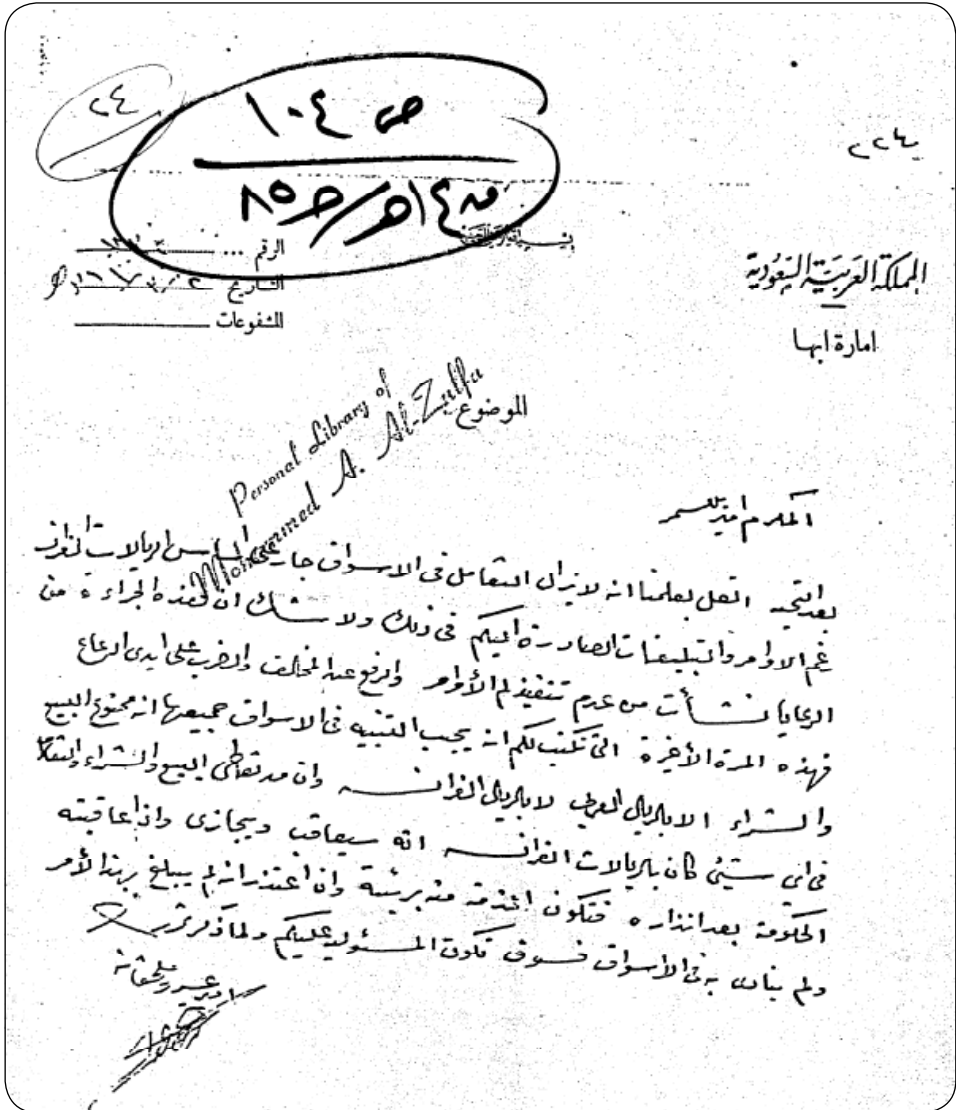 ٢٤
ص ١٠٤
١٤هـ/ح٨٥
٢٢٤
بسم الله الرحمن الرحيم
المملكة العربية السعودية
امارة ابها
الرقم ...
التاريخ
المشفوعات
الموضوع
Personal Library of
Mohammed A. Al-Zulfa
المكرم امير بللسمر
بعد التحيه اتصل بعلمنا انه لا يزال التعامل في الاسواق جار على اساس الريالات الفرانسه
رغم الاوامر والتبليغات الصادرة اليكم في ذلك ولا شك ان هذه الجراءة من
الرعايا نشأت من عدم تنفيذكم الأوامر والرفع عن المخالف والضرب على ايدي الرعاع
فهذه المرة الأخيرة التي نكتب لكم انه يجب التنبيه في الاسواق جميعها انه ممنوع البيع
والشراء الا بالريال العربي لا بالريال الفرانسه وان من تعاطى البيع والشراء
في اي شيئ كان بالريالات الفرانسه انه سيعاقب ويجازى واذا عاقبته
الحكومة بعد انذاره فتكون الذمة منه بريئة وان اعتذر انه لم يبلغ بهذا الأمر
ولم ينادى به في الأسواق فسوف تكون المسئولية عليكم ولما ذكر تحرر
امير عسير وملحقاته